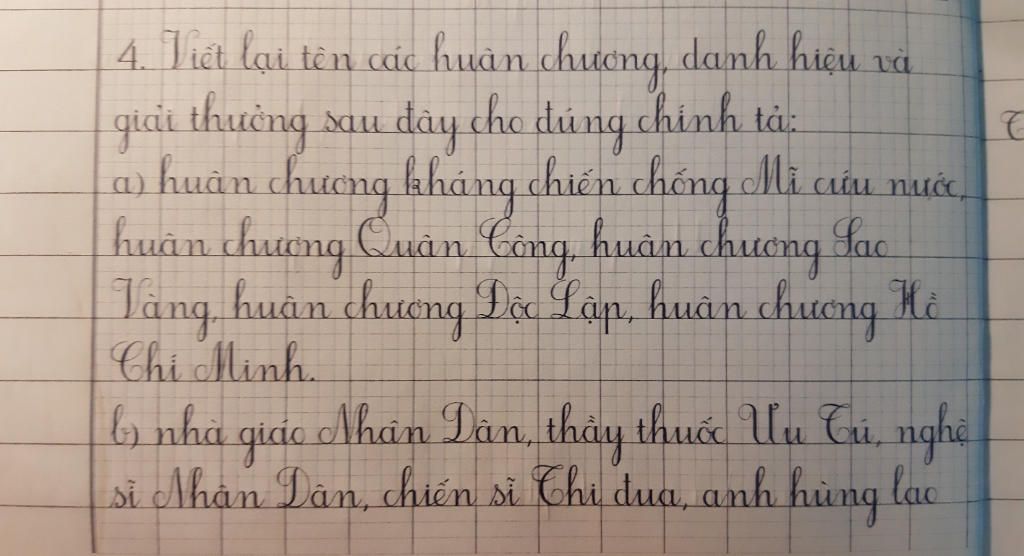 4. Viết lại tên các huân chương, danh hiệu và
giải thưởng sau đây cho đúng chính tả:
a) huân chương kháng chiến chống Mĩ cứu nước,
huân chương Quân Công, huân chương Sao
Vàng, huân chương Độc Lập, huân chương Hồ
Chí Minh.
b) nhà giáo Nhân Dân, thầy thuốc Ưu Tú, nghệ
sĩ Nhân Dân, chiến sĩ Thi dua, anh hùng lao